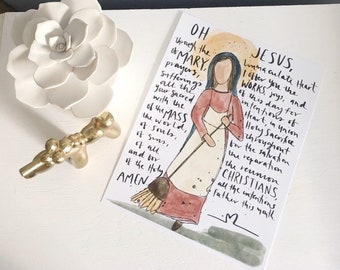 OH JESUS,
through the Immaculate Heart
of MARY, I offer you the
prayers, WORKS, joys, and
sufferings of this day, for
all the intentions of
your Sacred Heart, in union
with the Holy Sacrifice
of the MASS throughout
the world, the salvation
of souls, the reparation
of sins, the reunion
of all CHRISTIANS,
and for all the intentions
of the Holy Father this month.
AMEN